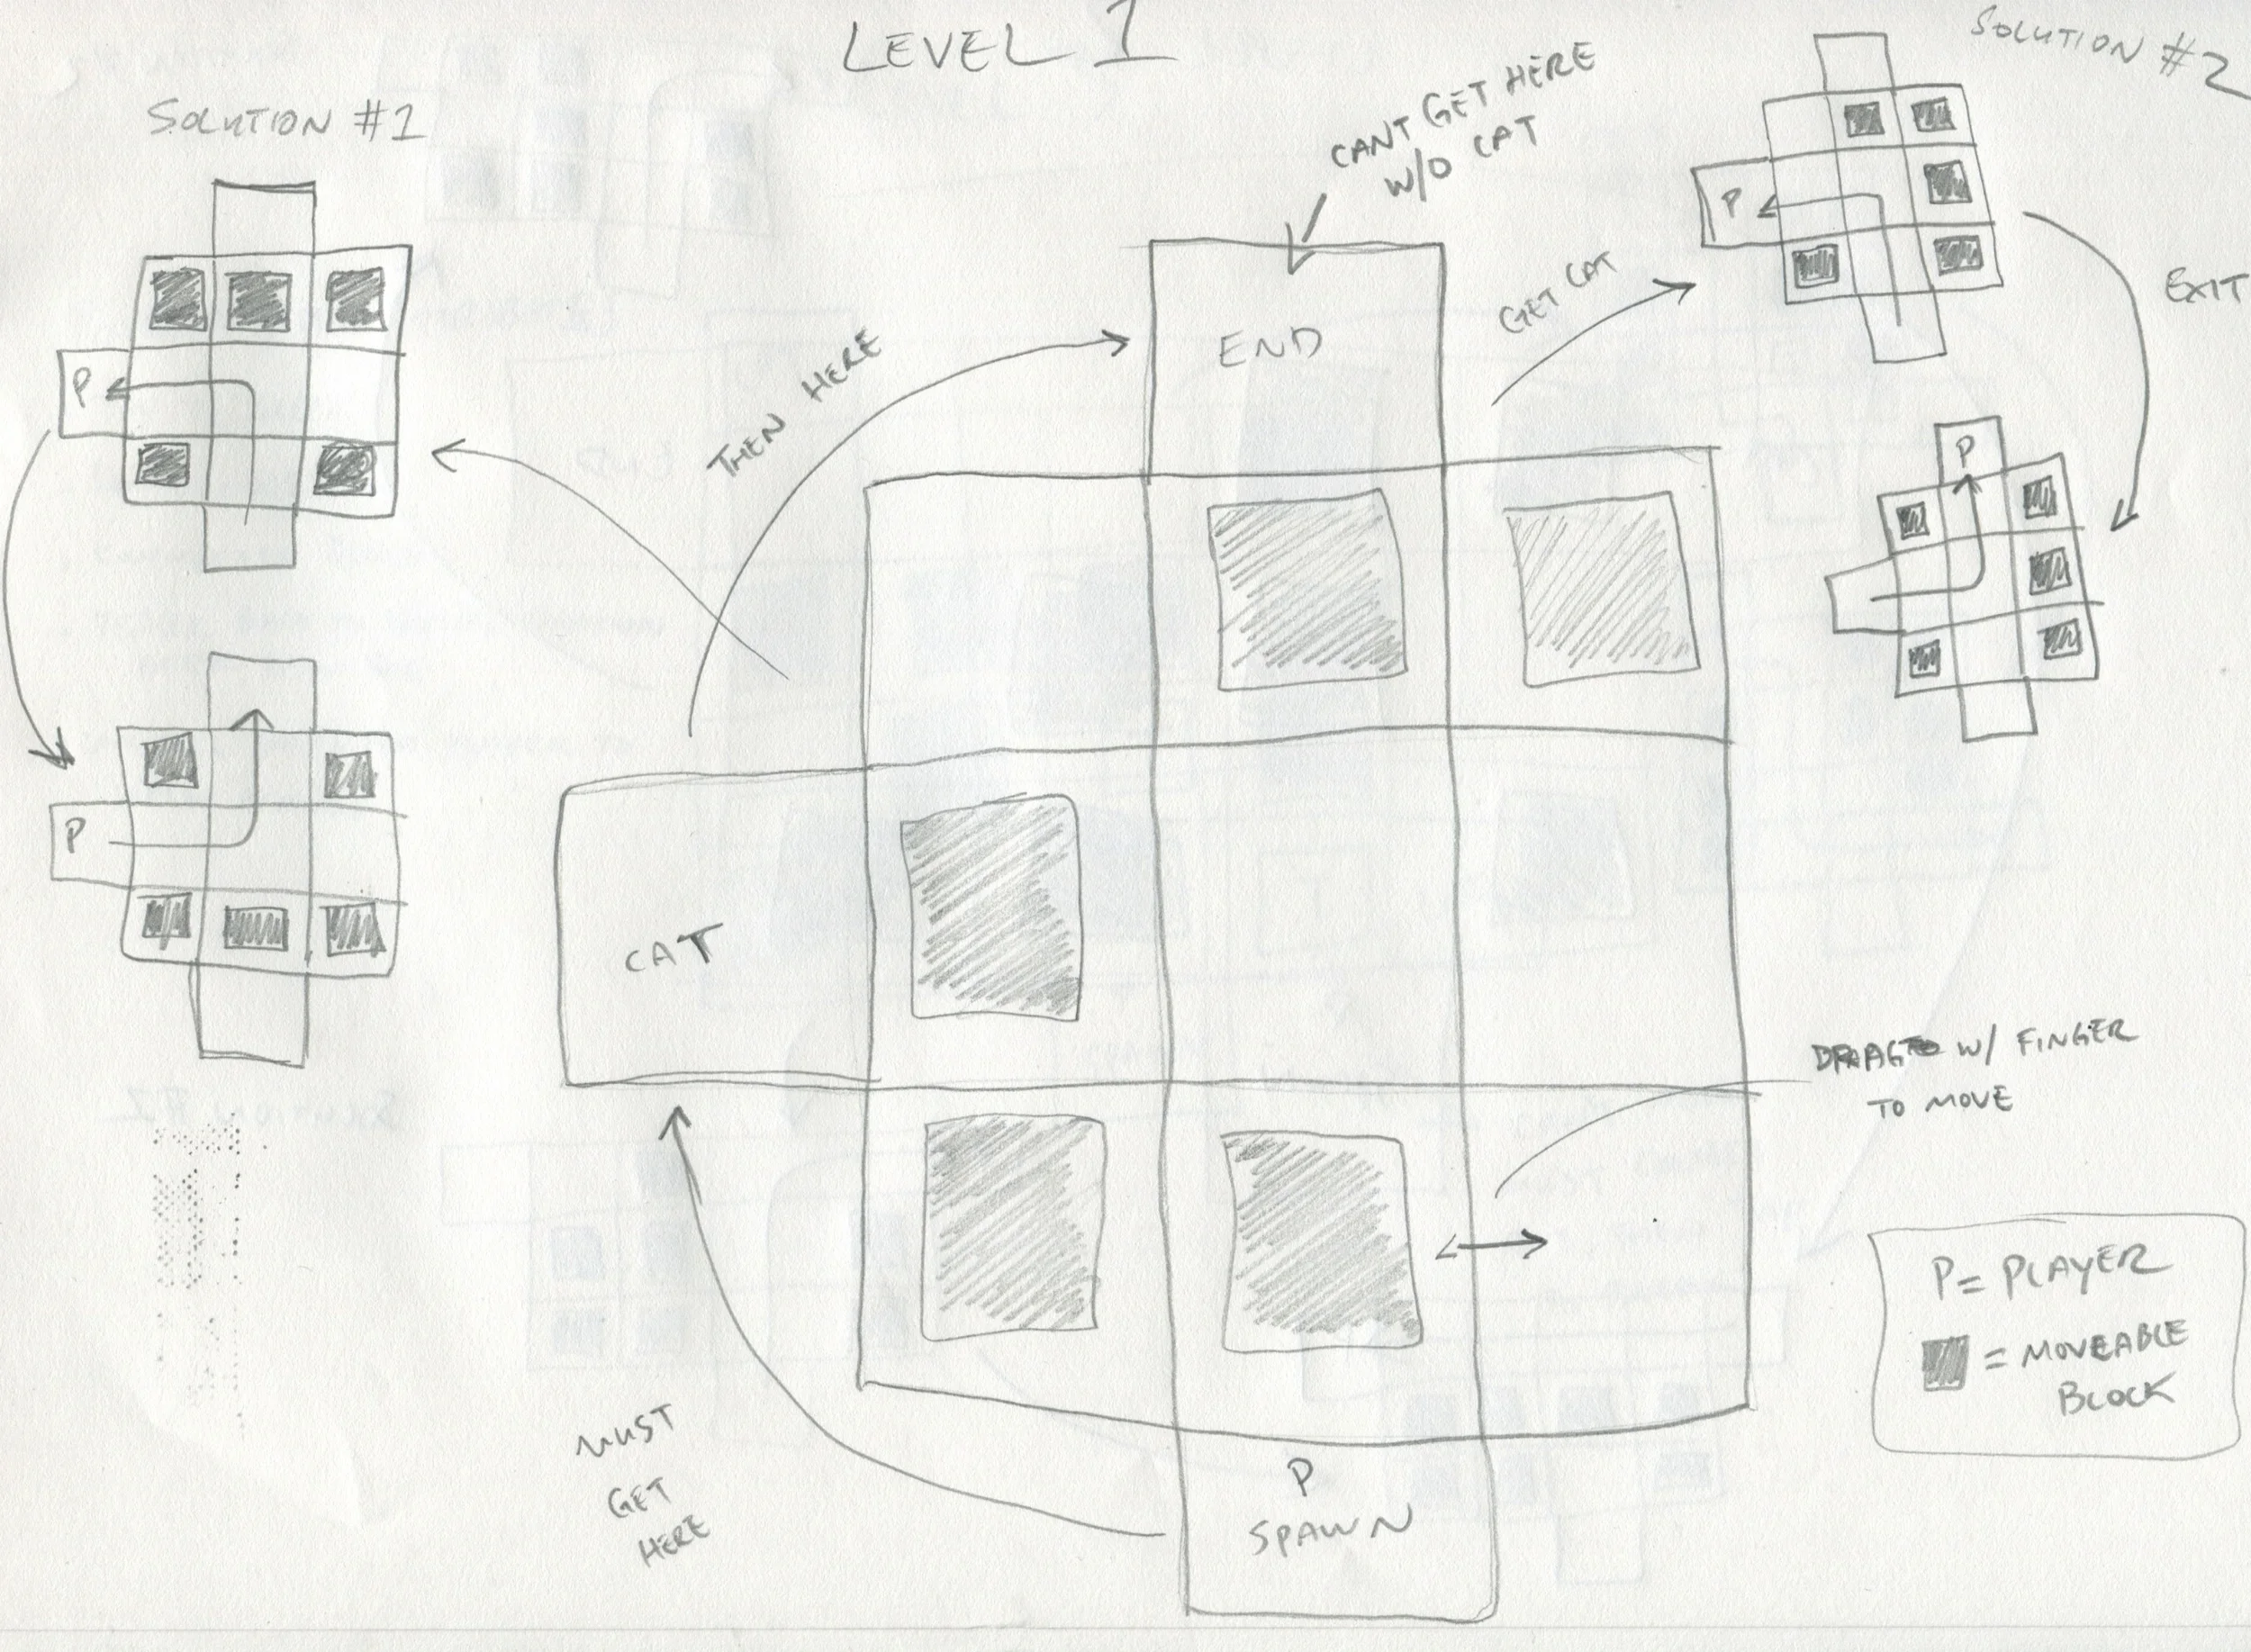 LEVEL 1
SOLUTION #1
SOLUTION #2
CANT GET HERE
W/O CAT
P
P
GET CAT
EXIT
THEN HERE
END
P
P
CAT
DRAG W/ FINGER
TO MOVE
MUST
GET
HERE
P
SPAWN
P = PLAYER
= MOVEABLE
BLOCK